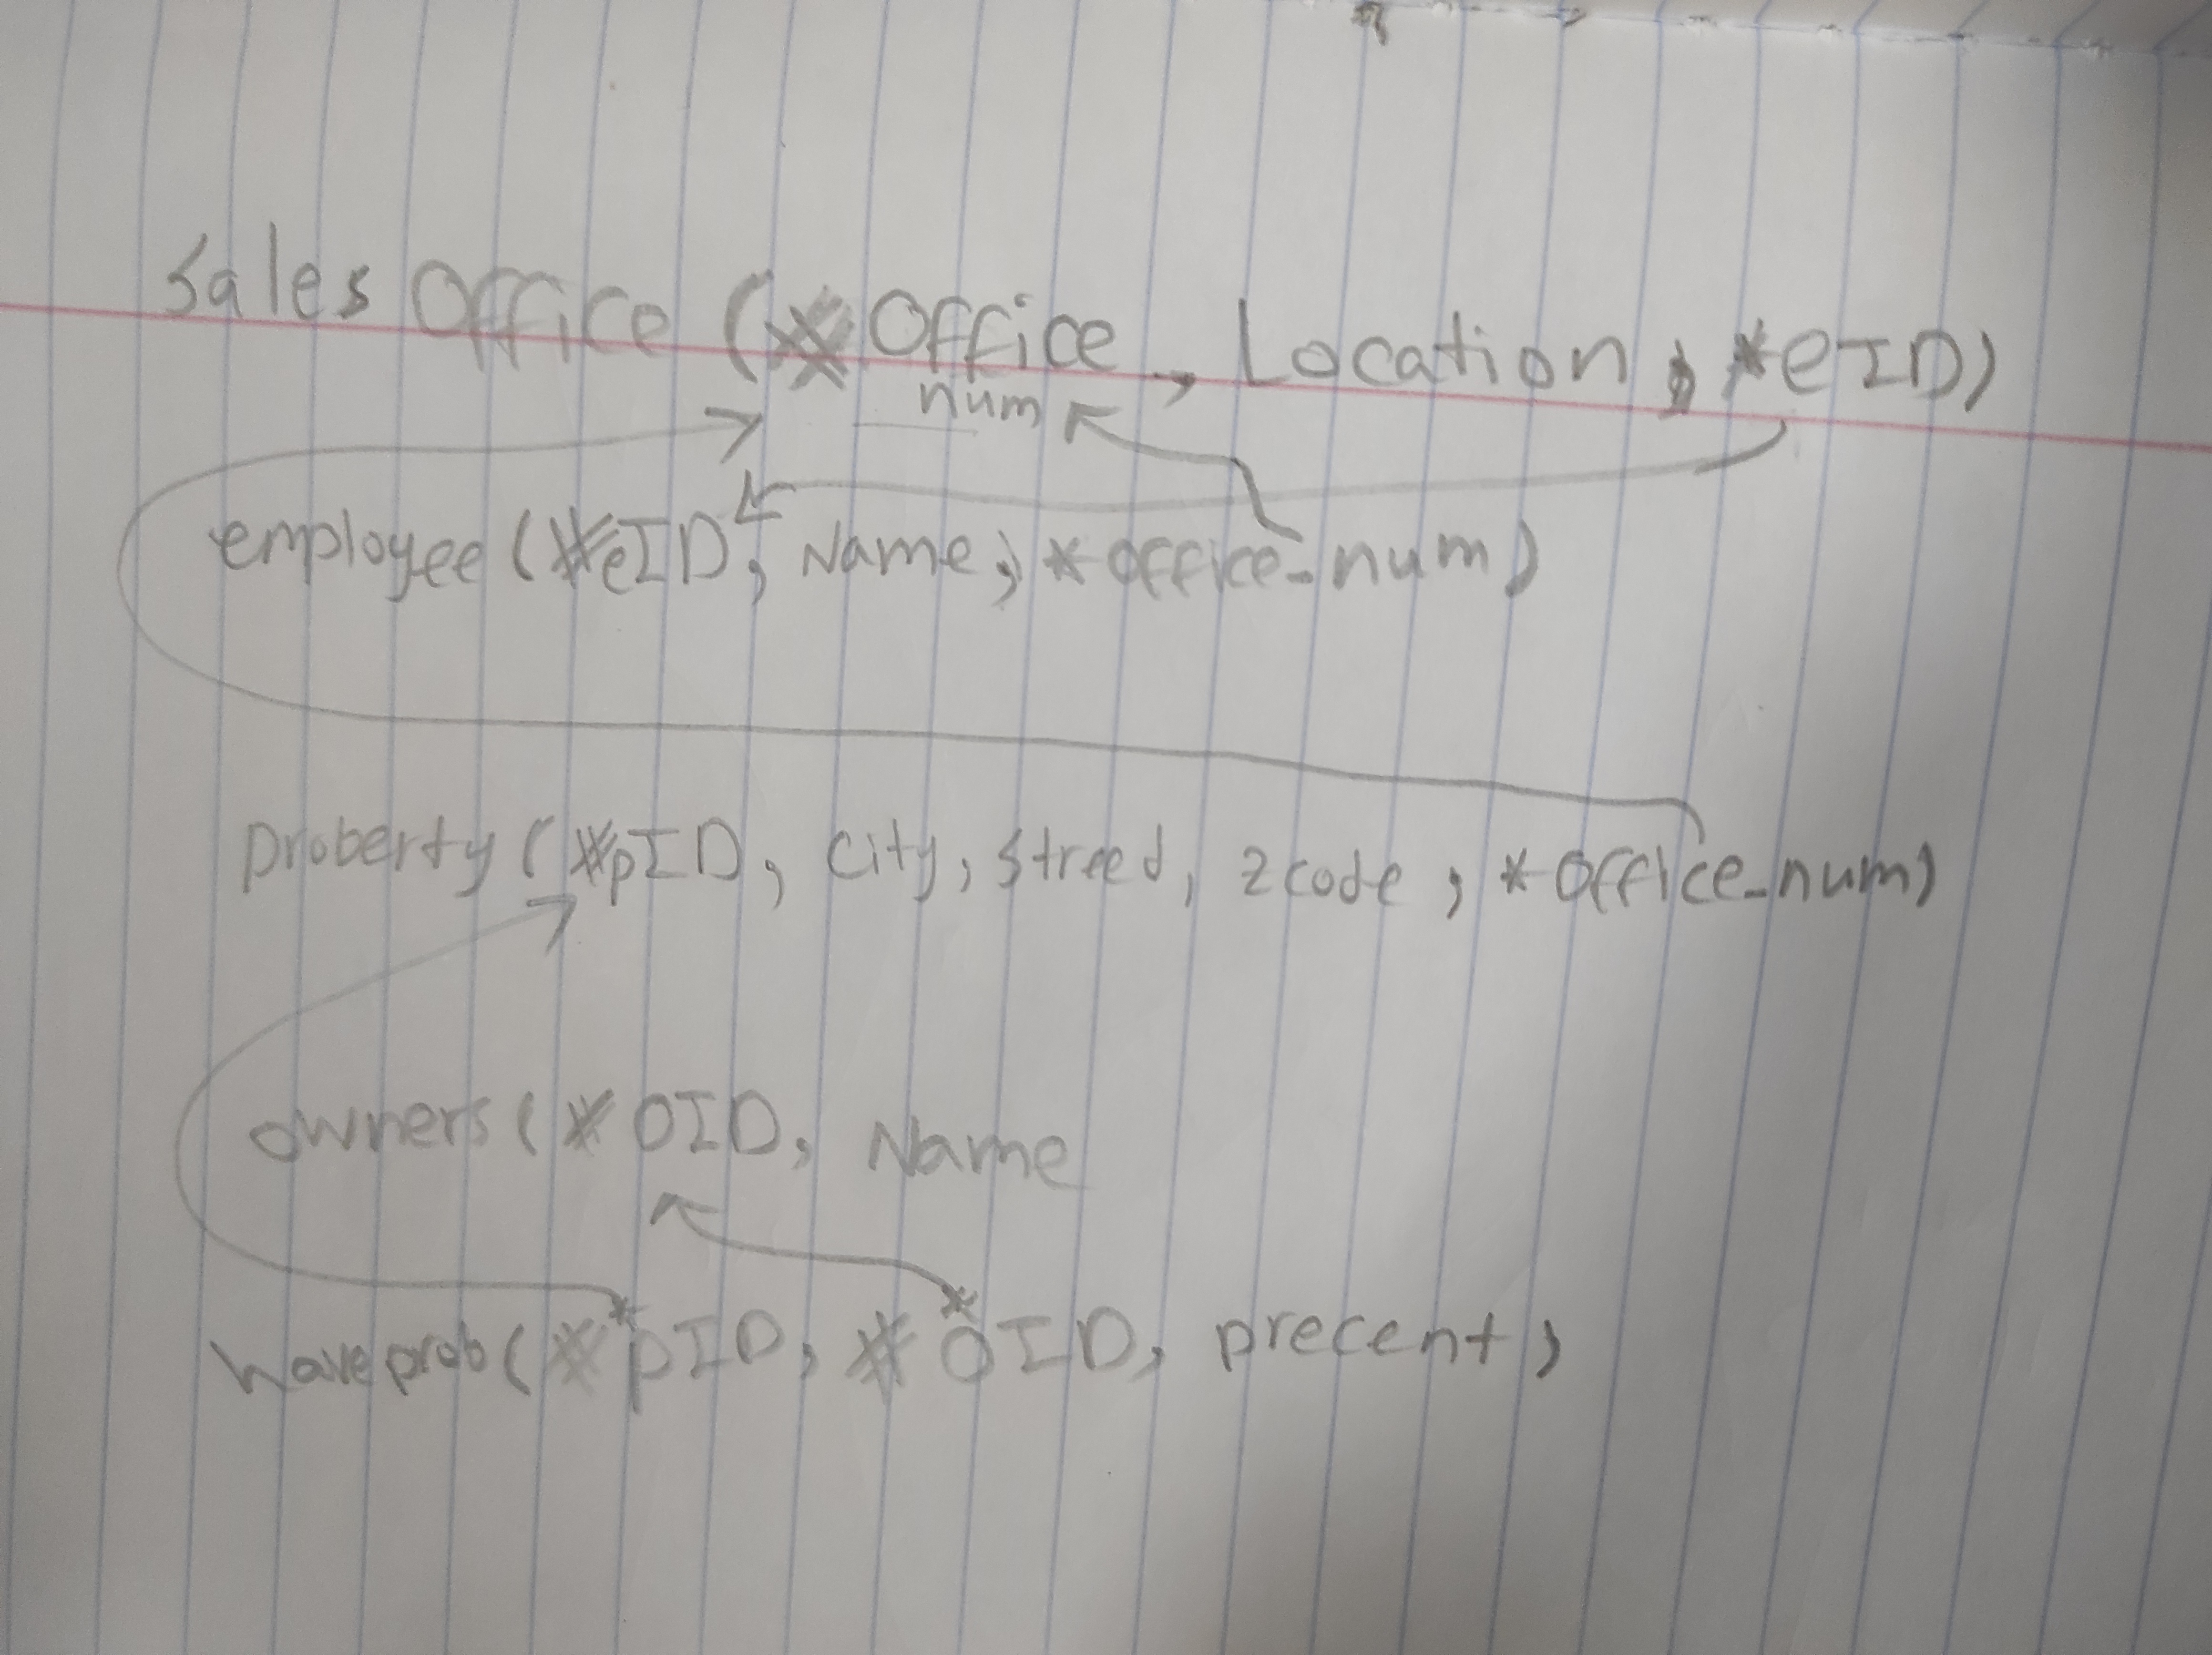 Sales Office (# Office_num, Location, *eID)
employee (#eID, Name, *office_num)
proberty (#pID, city, streed, zcode, *office_num)
owners (# OID, Name
haveprob (# *pID, # *OID, precent)